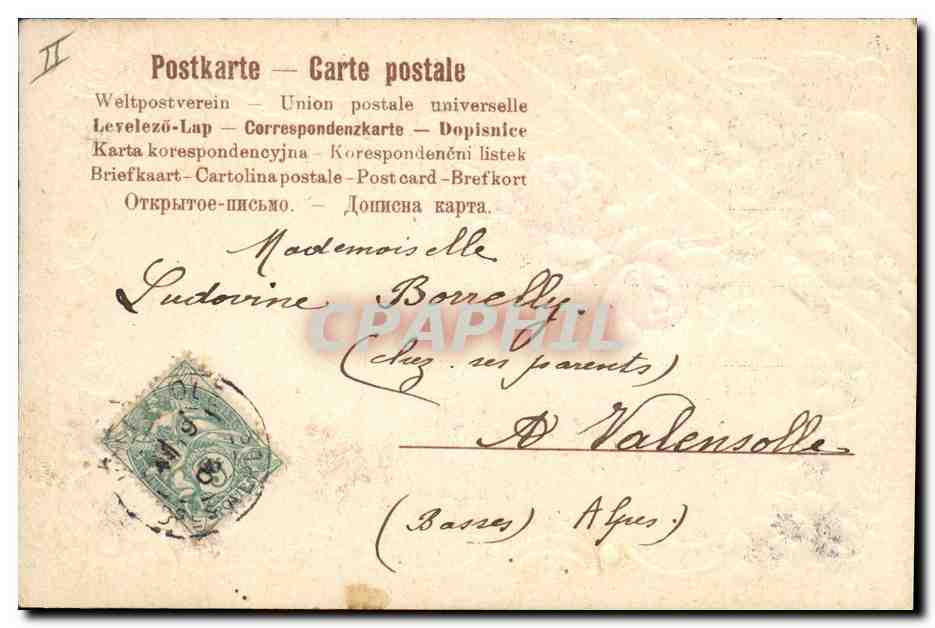 II
Postkarte — Carte postale
Weltpostverein — Union postale universelle
Levelező-Lap — Correspondenzkarte — Dopisnice
Karta korespondencyjna - Korespondenčni listek
Briefkaart - Cartolina postale - Post card - Brefkort
Открытое-письмо. — Дописна карта.
Mademoiselle
Ludovine Borrelly
CPAPHIL
(chez ses parents)
A Valensolle
(Basses) Alpes.)